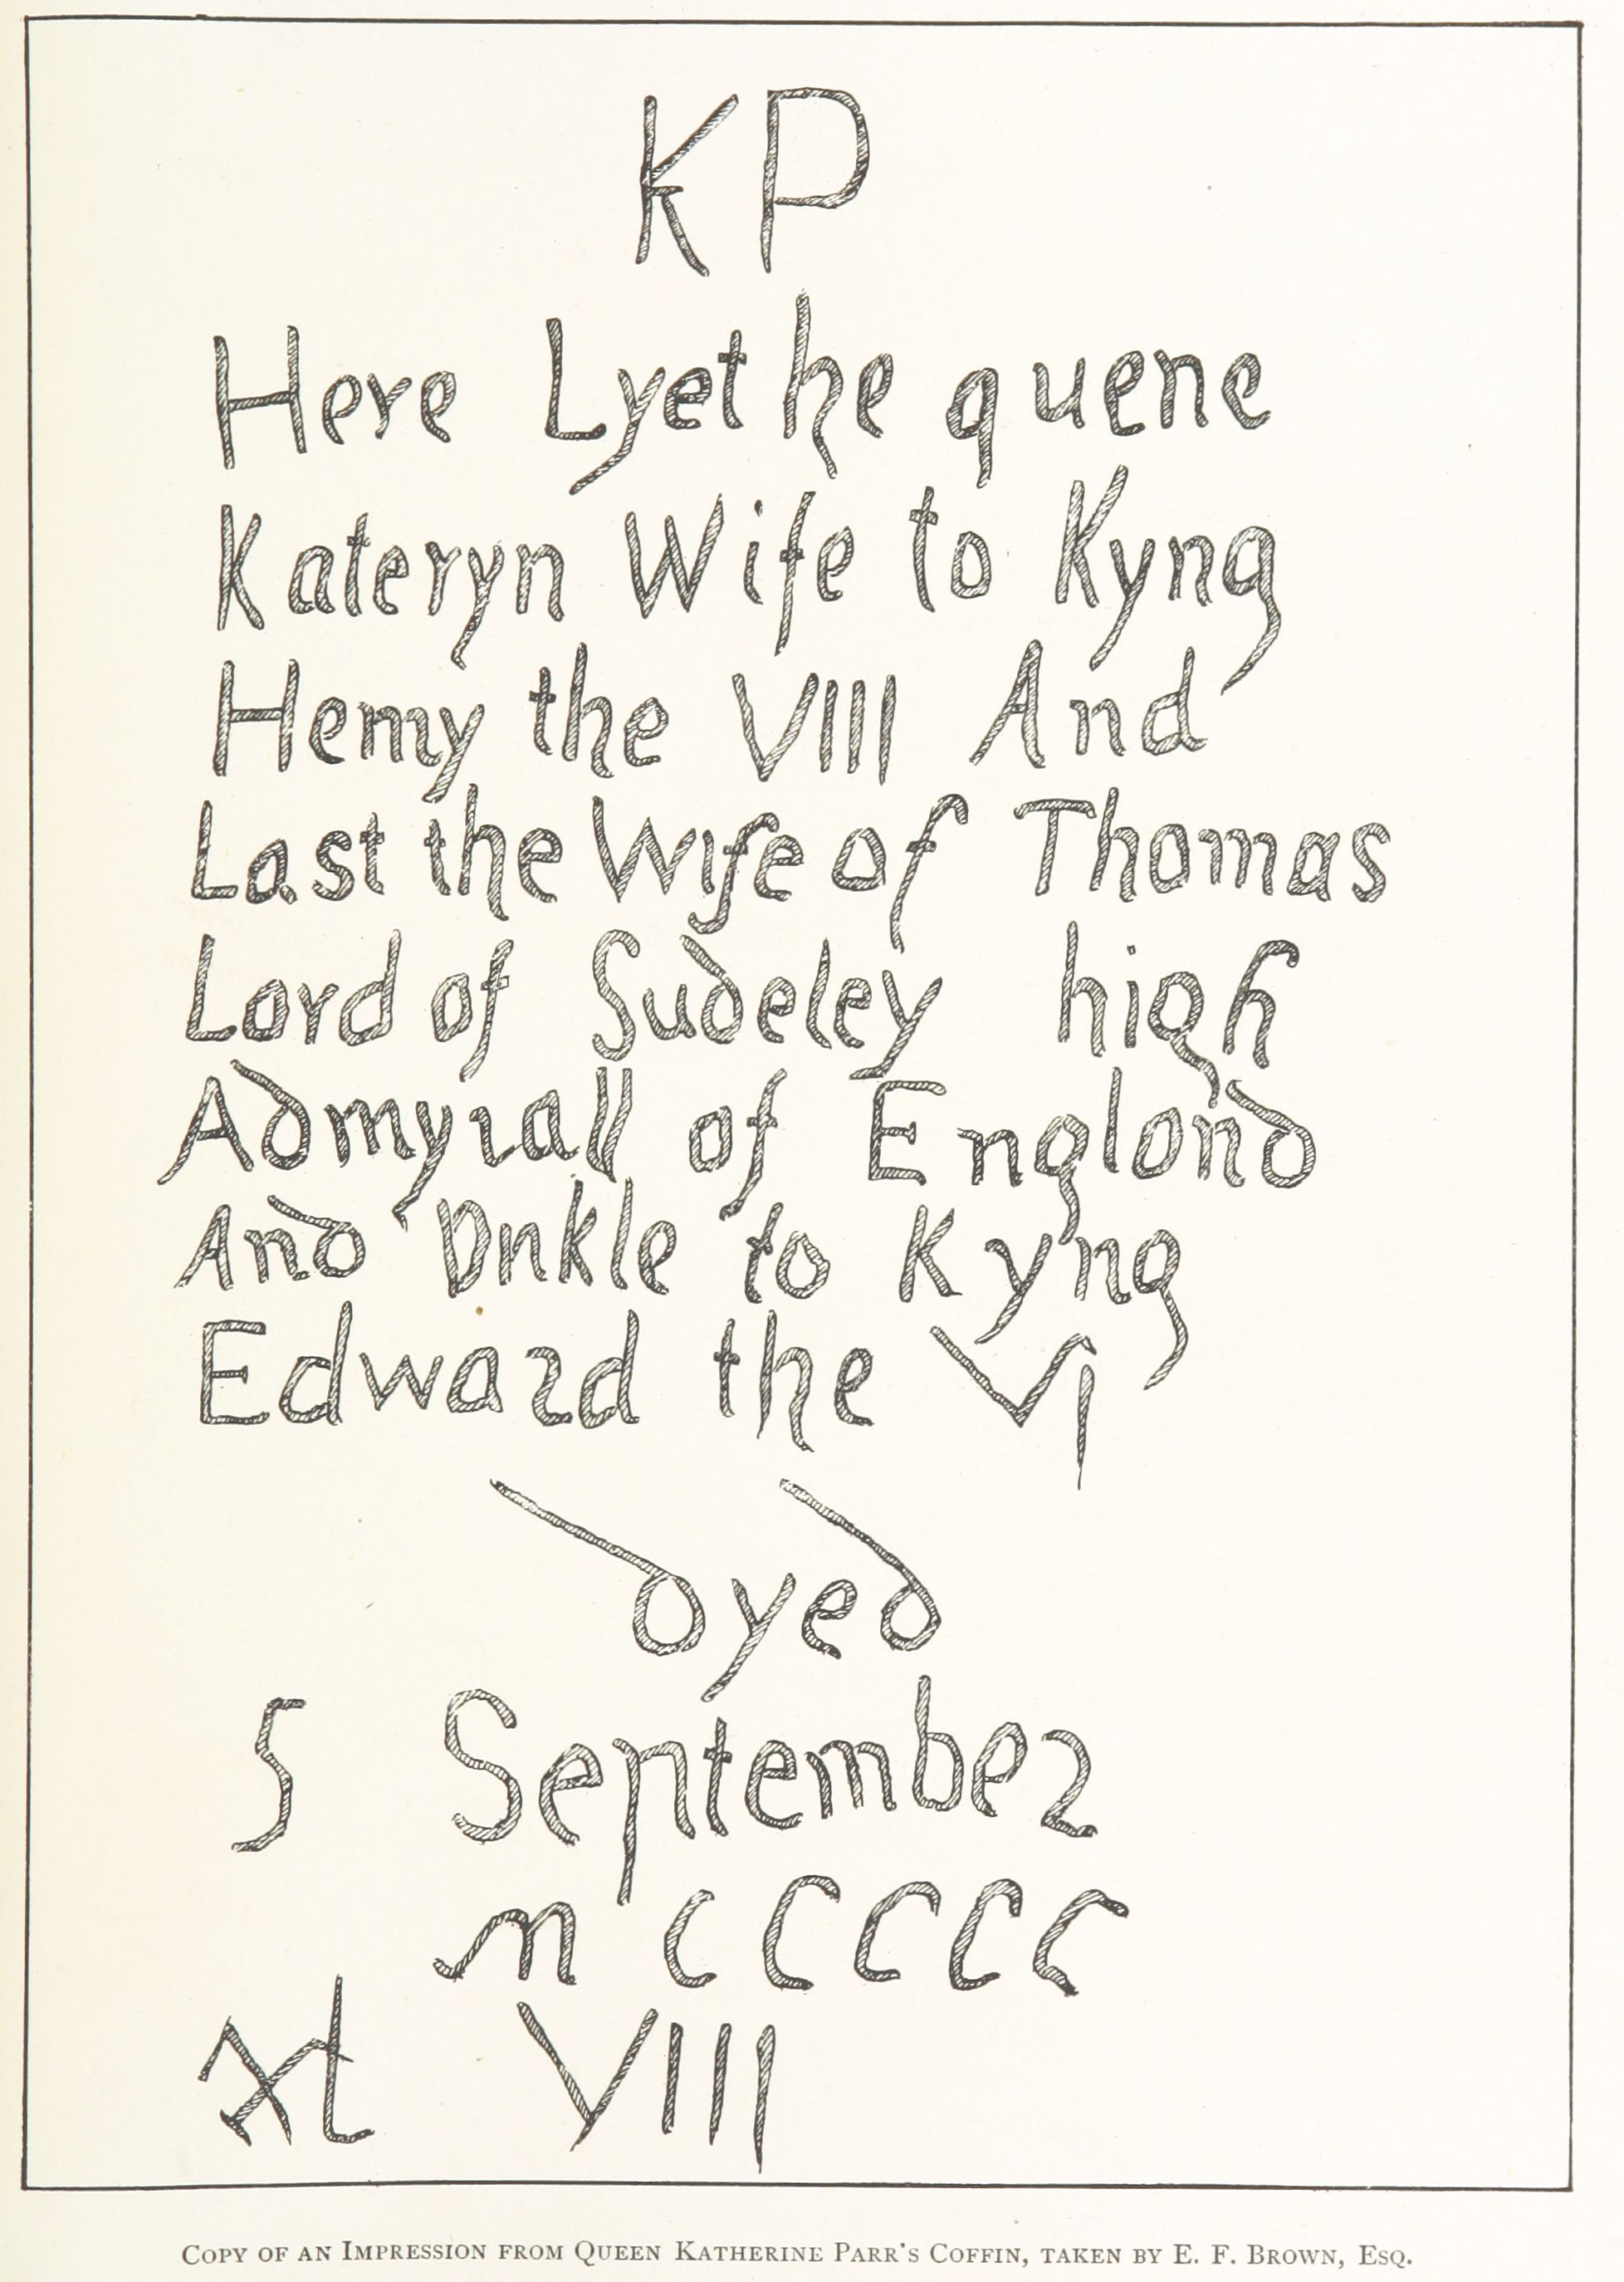 KP
Here Lyet he quene
Kateryn Wife to Kyng
Hemy the VIII And
Last the Wife of Thomas
Lord of Sudeley high
Admyrall of Englond
And Vnkle to Kyng
Edward the VI
dyed
5 September
M C C C C C
xl VIII
COPY OF AN IMPRESSION FROM QUEEN KATHERINE PARR'S COFFIN, TAKEN BY E. F. BROWN, ESQ.